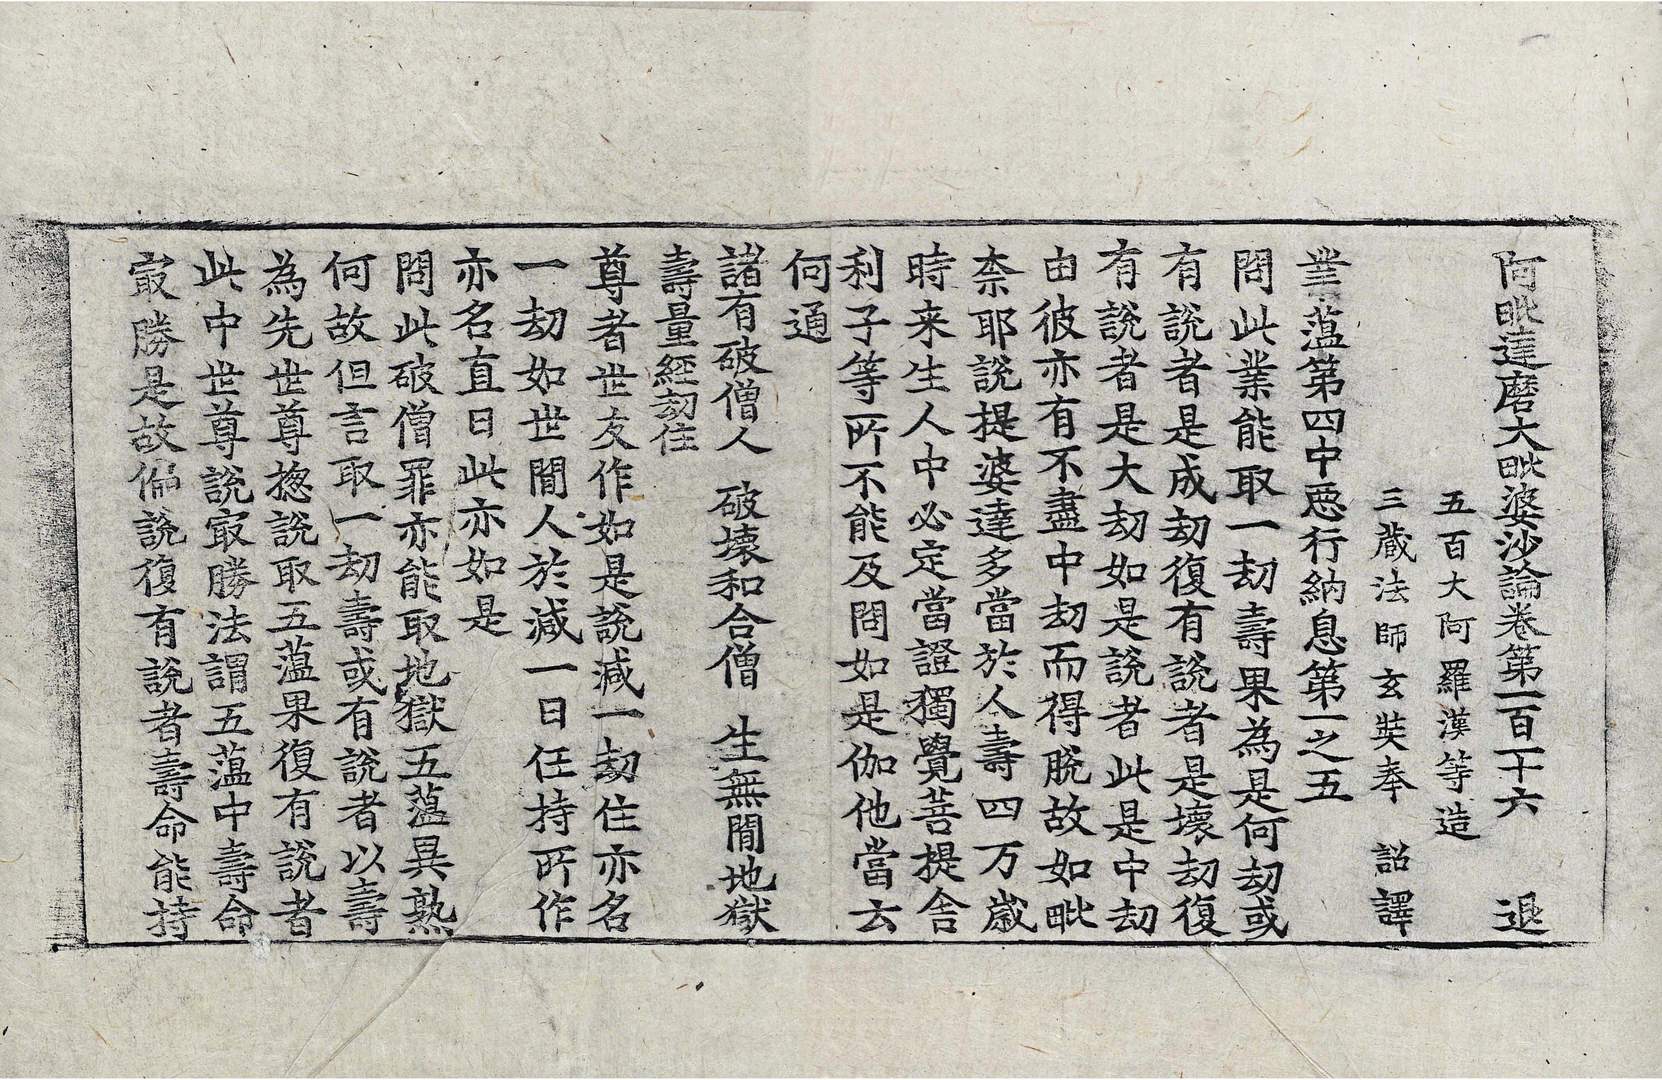 阿毗達磨大毗婆沙論卷第一百一十六　退
五百大阿羅漢等造
三藏法師玄奘奉　詔譯
業蕰第四中惡行納息第一之五
問此業能取一劫壽果為是何劫或
有說者是成劫復有說者是壞劫復
有說者是大劫如是說者此是中劫
由彼亦有不盡中劫而得脫故如毗
柰耶說提婆達多當於人壽四万歲
時来生人中必定當證獨覺菩提舍
利子等所不能及問如是伽他當云
何通
諸有破僧人　破壞和合僧　生無間地獄
壽量經劫住
尊者世友作如是說減一劫住亦名
一劫如世間人於減一日任持所作
亦名直日此亦如是
問此破僧罪亦能取地獄五蕰異熟
何故但言取一劫壽或有說者以壽
為先世尊揔說取五蕰果復有說者
此中世尊說㝡勝法謂五蕰中壽命
㝡勝是故偏說復有說者壽命能持